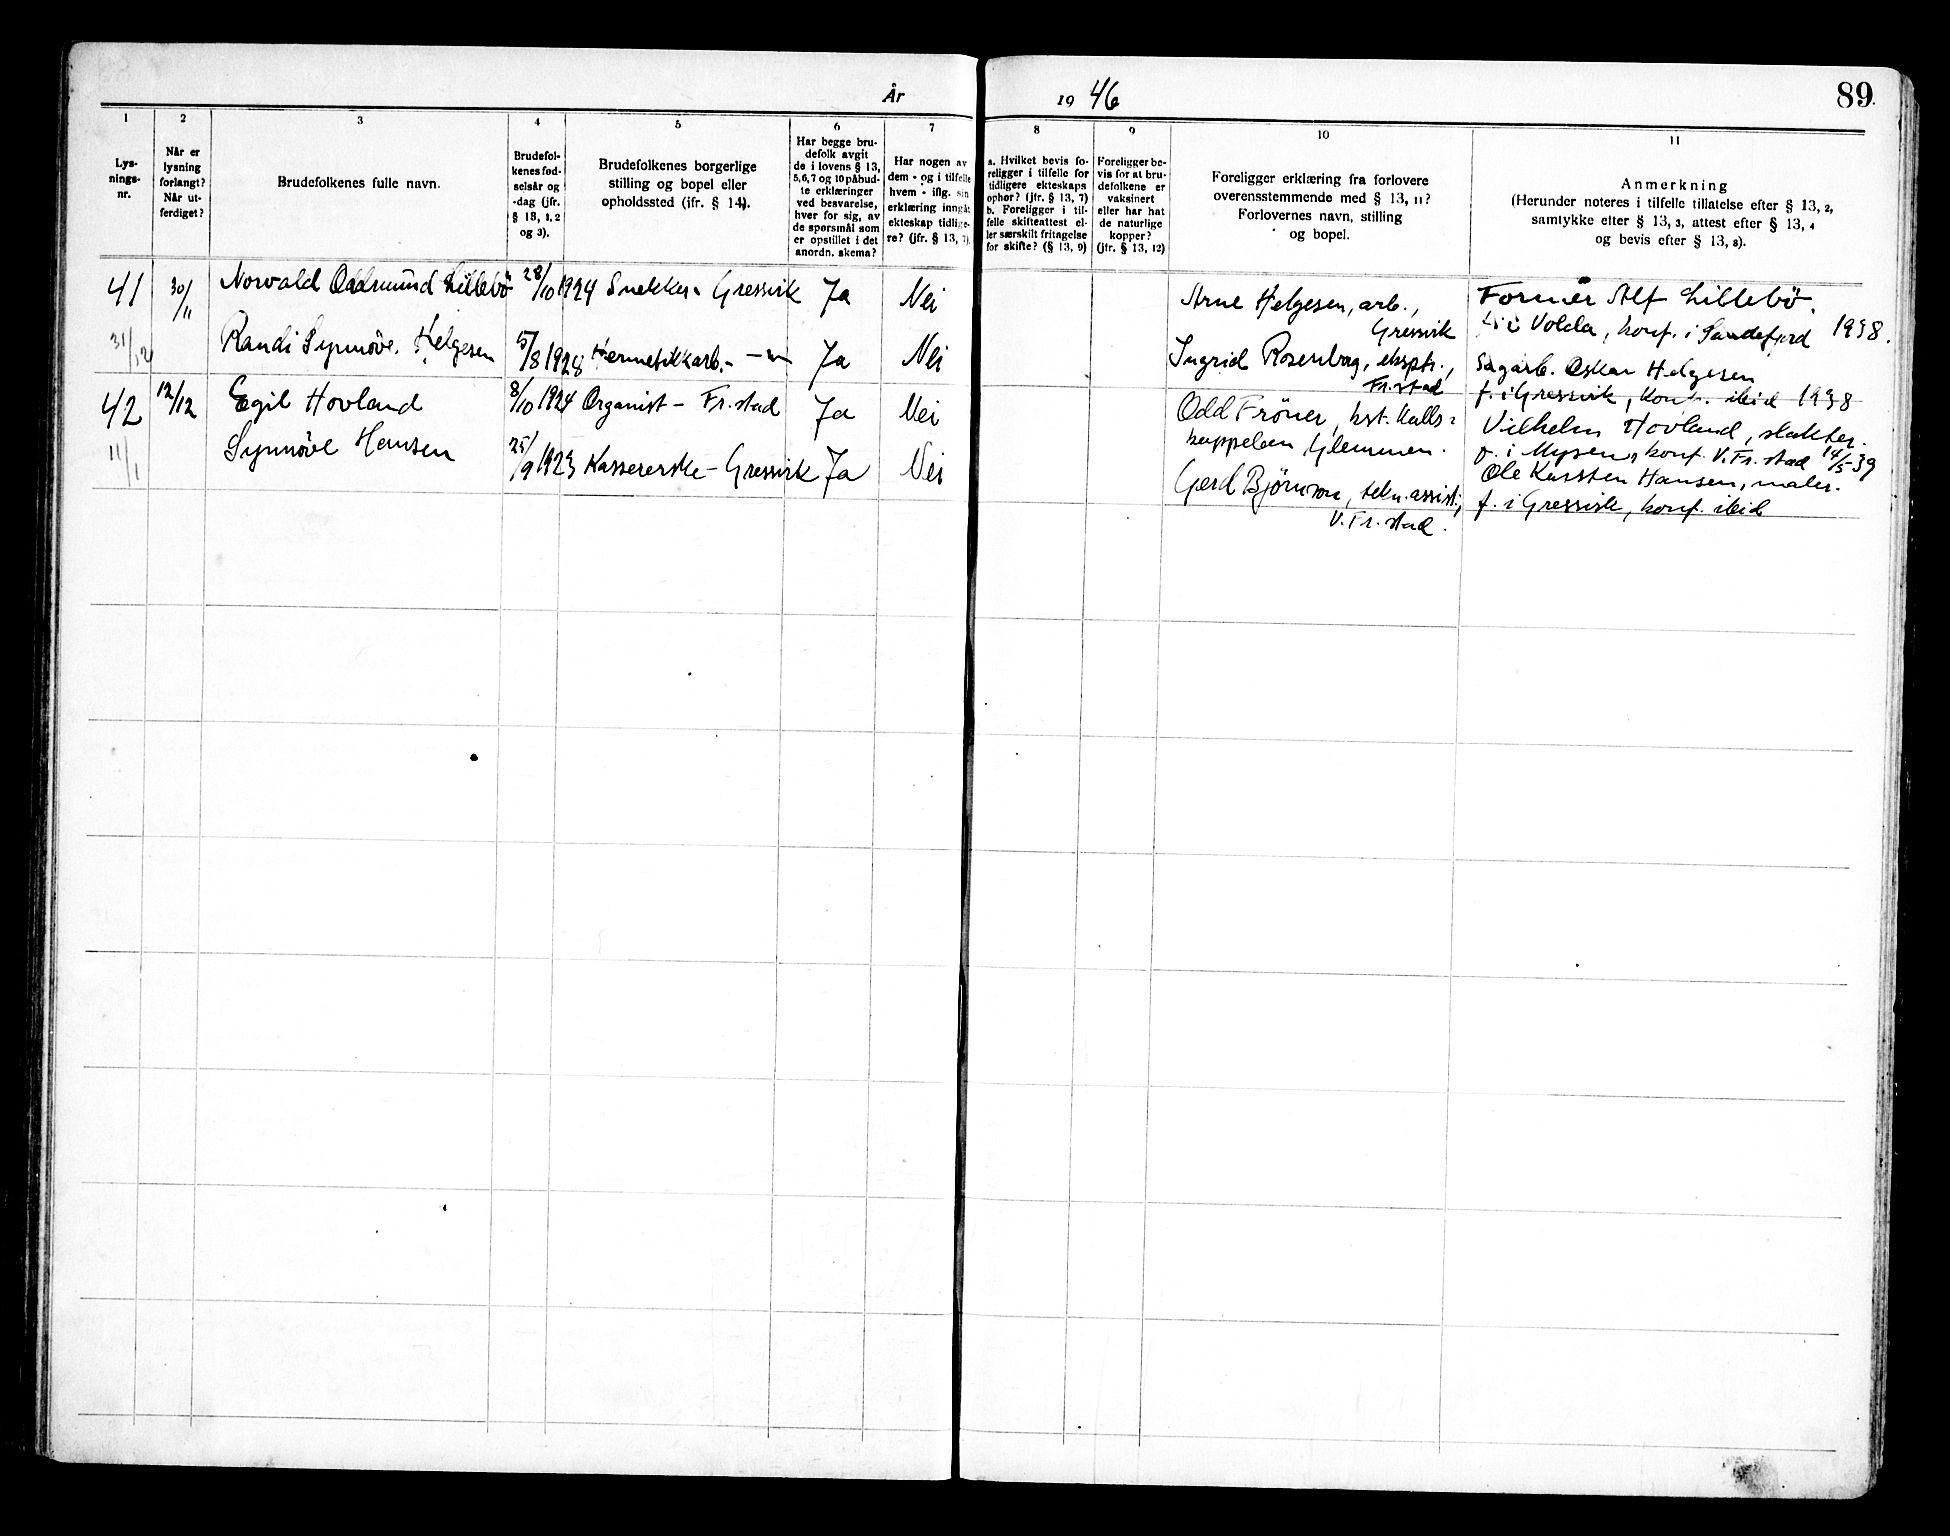 År 1946
89.
1 2 3 4 5 6 7 8 9 10 11
Lys-
nings-
nr.
Når er
lysning
forlangt?
Når ut-
ferdiget?
Brudefolkenes fulle navn.
Brudefol-
kenes fød-
selsår og
-dag (jfr.
§ 13, 1, 2
og 3).
Brudefolkenes borgerlige
stilling og bopel eller
opholdssted (ifr. § 14).
Har begge bru-
defolk avgit
de i lovens § 13,
5,6,7 og 10 påbud-
te erklæringer
ved besvarelse,
hver for sig, av
de spørsmål som
er opstillet i det
anordn. skema?
Har nogen av
dem - og i tilfelle
hvem - iflg. sin
erklæring inngåt
ekteskap tidlige-
re? (jfr. § 13, 7).
a. Hvilket bevis fo-
religger i tilfelle for
tidligere ekteskaps
ophør? (jfr. § 13, 7)
b. Foreligger i til-
felle skifteattest el-
ler særskilt fritagelse
for skifte? (§ 13, 9)
Foreligger be-
vis for at bru-
defolkene er
vaksinert
eller har hat
de naturlige
kopper?
(jfr. § 13, 12)
Foreligger erklæring fra forlovere
overensstemmende med § 13, 11?
Forlovernes navn, stilling
og bopel.
Anmerkning
(Herunder noteres i tilfelle tillatelse efter § 13, 2,
samtykke efter § 13, 3, attest efter § 13, 4
og bevis efter § 13, 8).
41 30/11 Norvald Oddmund Lillebö 28/10 1924 Snekker - Gressvik Ja Nei
Arne Helgesen, arb.,
Gressvik
Former Alf Lillebö.
i Volda, konf. i Sandefjord 1938.
31/12 Randi Synnöve Helgesen 5/8 1928 Hermetikkarb. - " - Ja Nei
Ingrid Rosenborg, eksptr.,
Fr.stad
Sagarb. Oskar Helgesen
f. i Gressvik, konf. ibid 1938
42 12/12 Egil Hovland 8/10 1924 Organist - Fr.stad Ja Nei
Odd Fröner, bst. Kalls-
kappeleen, Glemmen.
Vilhelm Hovland, slakter.
f. i Mysen, konf. V. Fr.stad 14/5-39
11/1 Synnöve Hansen 25/9 1923 Kassererske - Gressvik Ja Nei
Gerd Björnson, tekn. assist.,
V. Fr. stad.
Ole Karsten Hansen, maler.
f. i Gressvik, konf. ibid